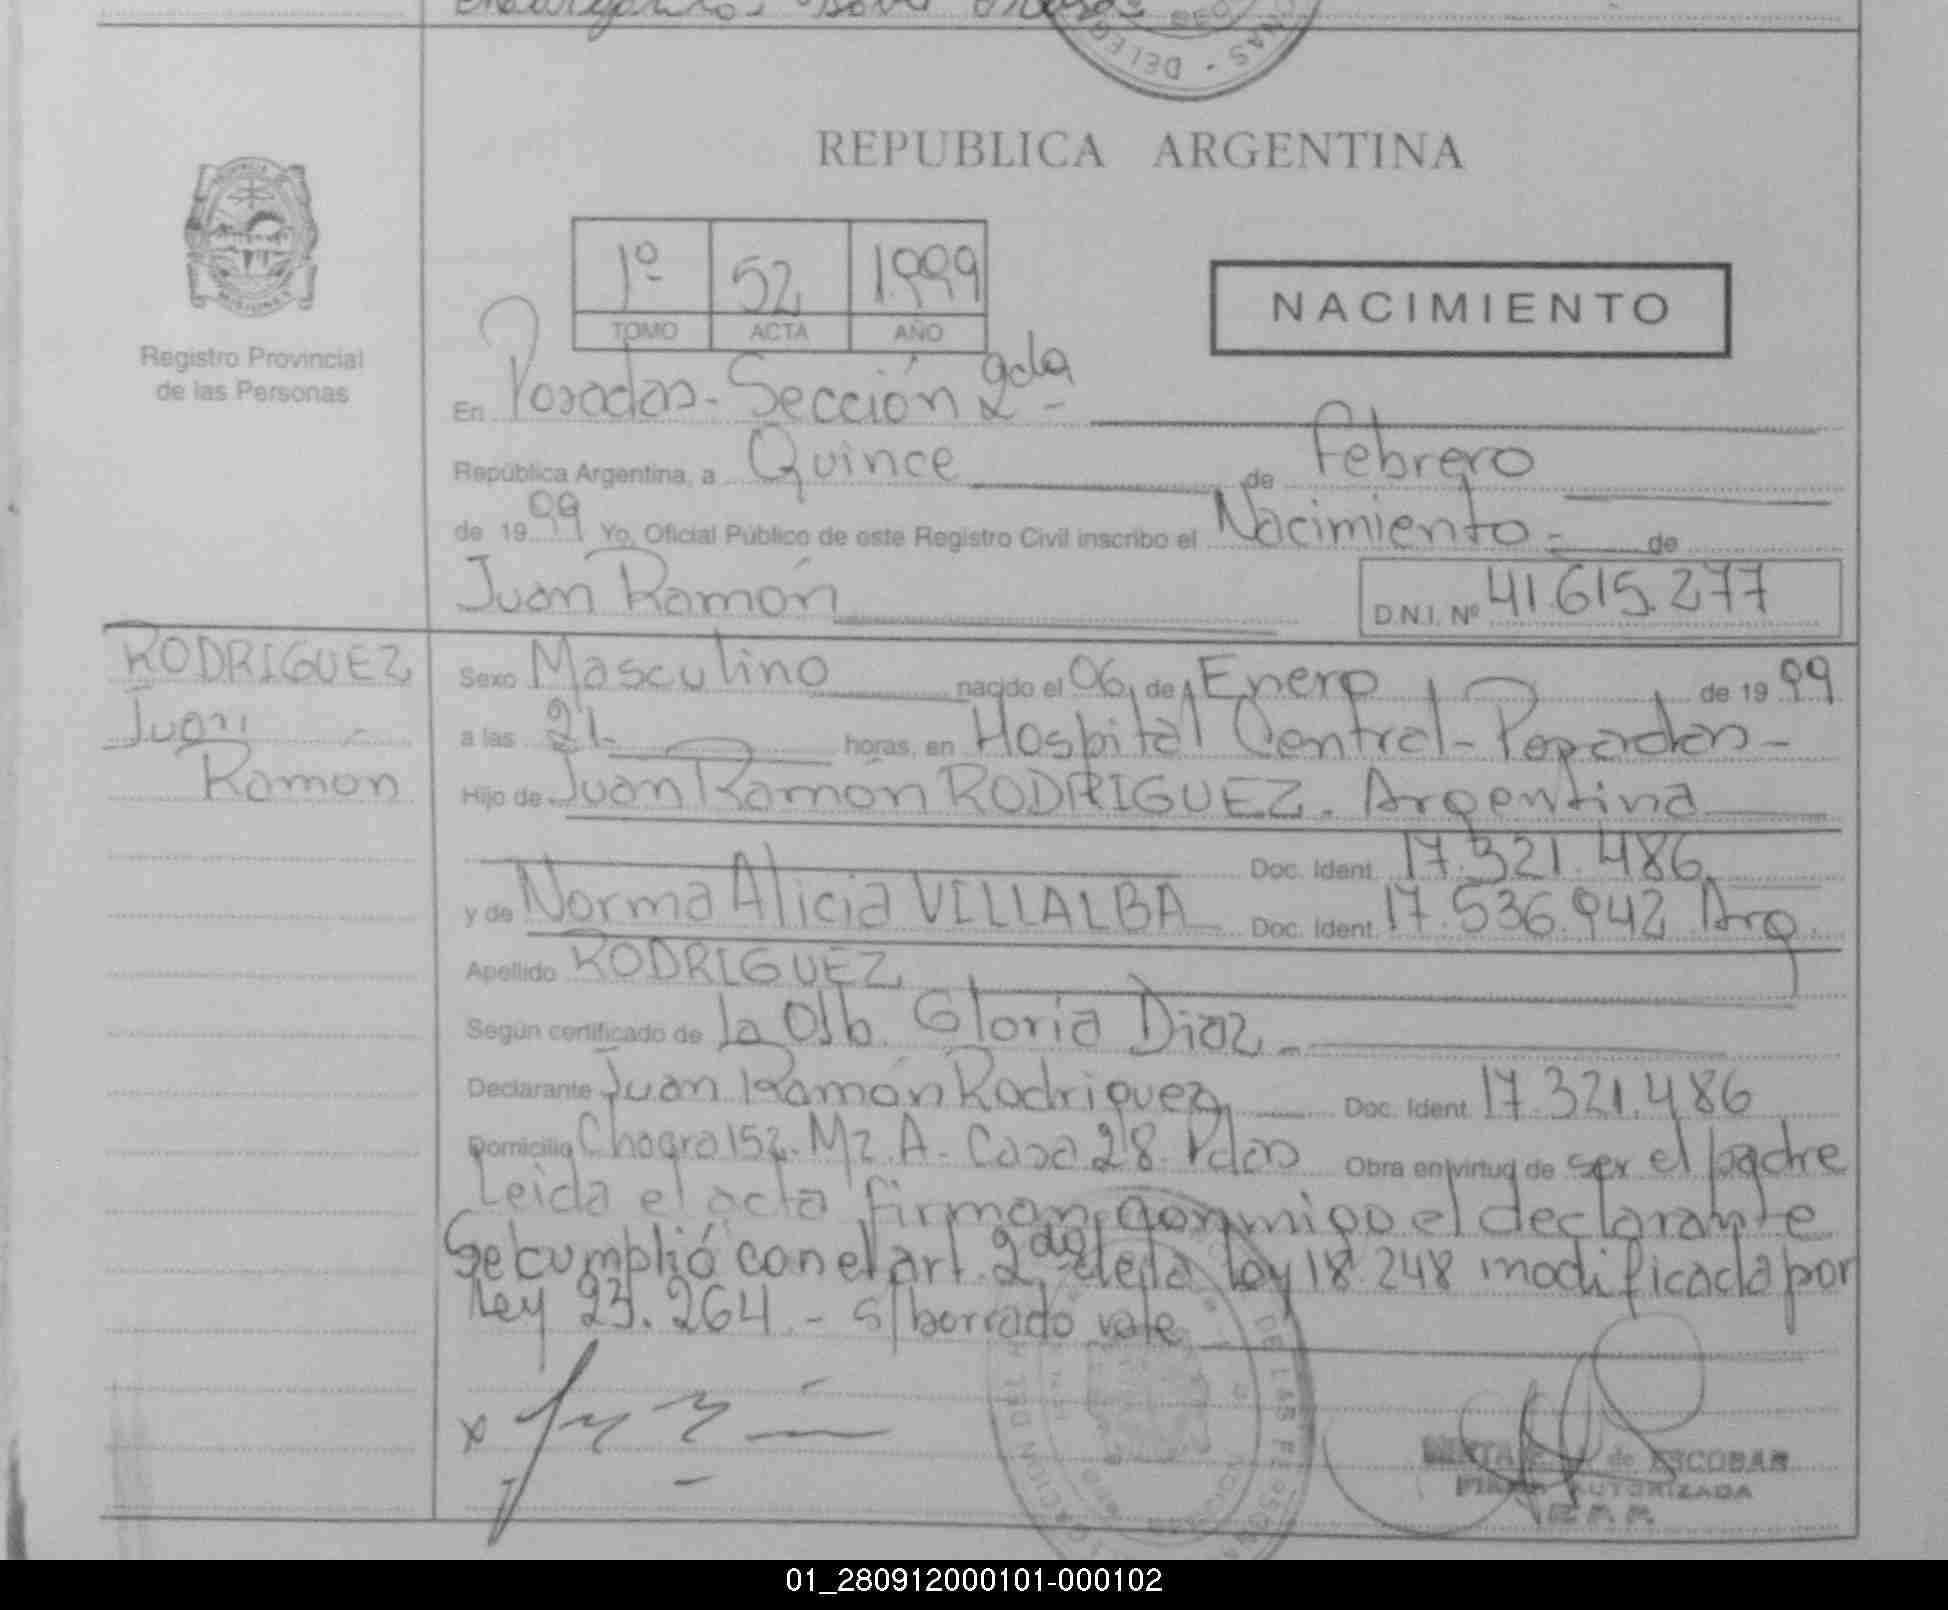 REPUBLICA ARGENTINA
1º 52 1.999
TOMO ACTA AÑO
NACIMIENTO
Registro Provincial
de las Personas
En Posadas - Sección 2da -
República Argentina, a Quince de Febrero
de 1999 Yo, Oficial Público de este Registro Civil inscribo el Nacimiento - de
Juan Ramón
D.N.I. Nº 41.615.277
RODRIGUEZ
Juan
Ramon
Sexo Masculino nacido el 06 de Enero de 1999
a las 21 horas, en Hospital Central - Posadas -
Hijo de Juan Ramón RODRIGUEZ. Argentina
Doc. Ident. 17.321.486
y de Norma Alicia VILLALBA Doc. Ident. 17.536.942 Arg.
Apellido RODRIGUEZ
Según certificado de la Ob. Gloria Diaz -
Declarante Juan Ramón Rodriguez Doc. Ident. 17.321.486
Domicilio Chagra 152. Mz. A. Casa 28. Pdas Obra en virtud de ser el padre
Leida el acta firman conmigo el declarante
Se cumplió con el art. 2do de la ley 18.248 modificada por
Ley 23.264 - s/borrado vale
de ESCOBAR
FIRMA AUTORIZADA
R.P.P.
01_280912000101-000102